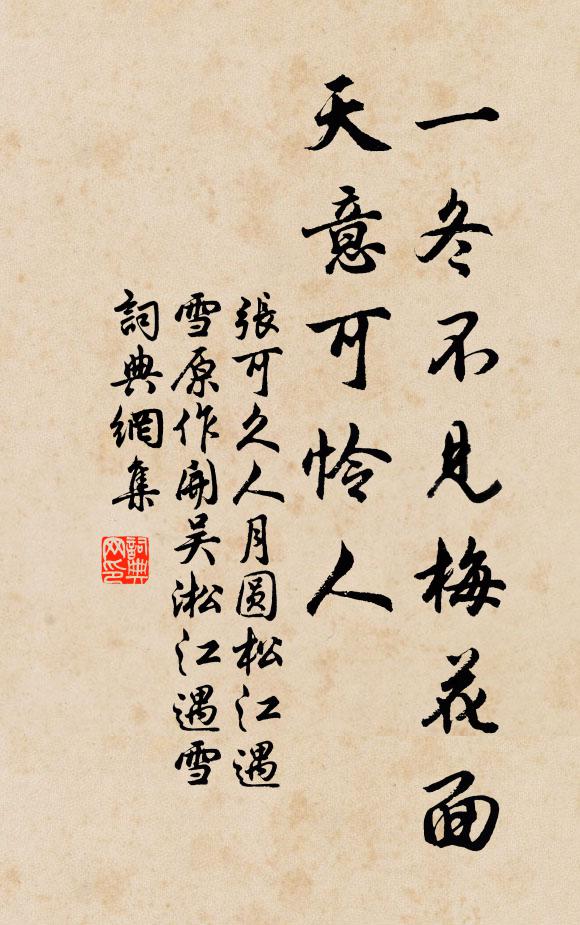 一冬不見梅花面
天意可怜人
張可久人月圆松江遇
雪原作開吴淞江遇雪
詞典網集
詞典网印